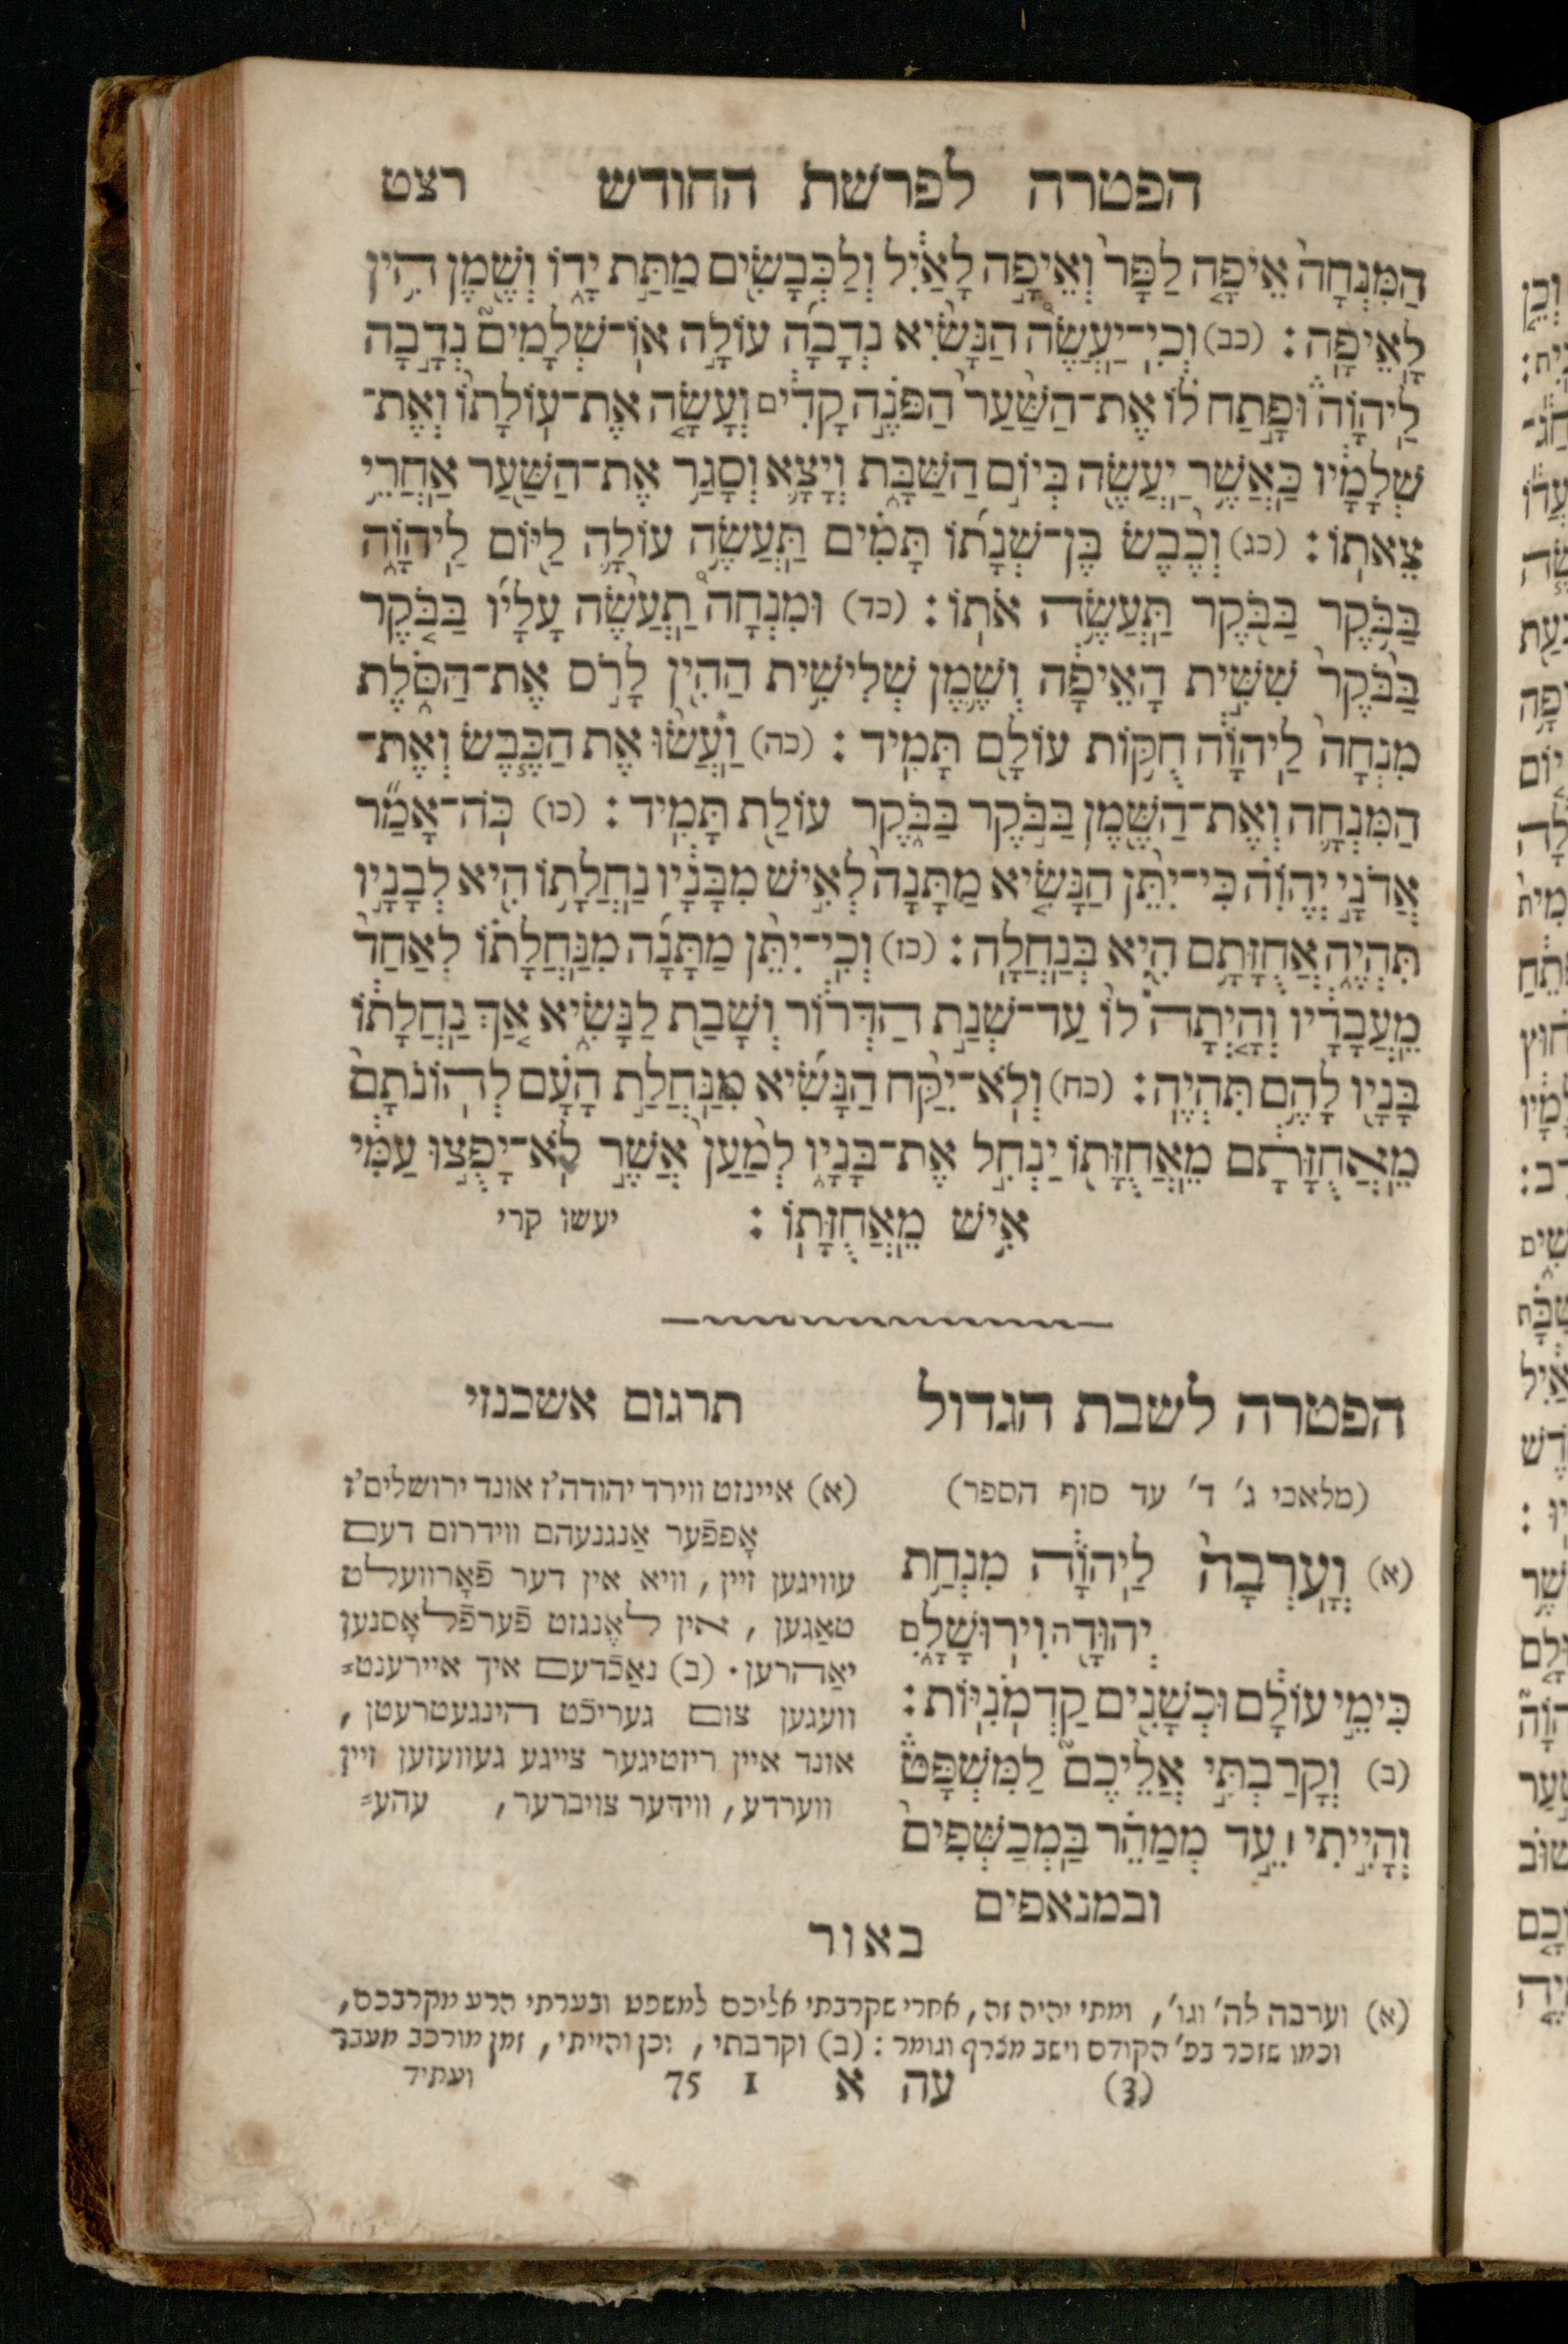 הפטרה לפרשת החודש רצט
הַמִּנְחָה֙ אֵיפָ֤ה לַפָּר֙ וְאֵיפָ֣ה לָאַ֔יִל וְלַכְּבָשִׂ֖ים מַתַּ֣ת יָד֑וֹ וְשֶׁ֥מֶן הִ֖ין
לָאֵיפָֽה׃ (כב) וְכִֽי־יַעֲשֶׂה֩ הַנָּשִׂ֨יא נְדָבָ֜ה עוֹלָ֣ה אֽוֹ־שְׁלָמִים֮ נְדָבָ֣ה
לַֽיהוָֹה֒ וּפָ֣תַח ל֗וֹ אֶת־הַשַּׁ֙עַר֙ הַפֹּנֶ֣ה קָדִ֔ים וְעָשָׂ֤ה אֶת־עֽוֹלָתוֹ֙ וְאֶת־
שְׁלָמָ֔יו כַּאֲשֶׁ֥ר יַעֲשֶׂ֖ה בְּי֣וֹם הַשַּׁבָּ֑ת וְיָצָ֛א וְסָגַ֥ר אֶת־הַשַּׁ֖עַר אַחֲרֵ֥י
צֵאתֽוֹ׃ (כג) וְכֶ֨בֶשׂ בֶּן־שְׁנָת֜וֹ תָּמִ֗ים תַּעֲשֶׂ֥ה עוֹלָ֛ה לַיּ֖וֹם לַֽיהוָֹ֑ה
בַּבֹּ֥קֶר בַּבֹּ֖קֶר תַּֽעֲשֶׂ֥ה אֹתֽוֹ׃ (כד) וּמִנְחָה֩ תַעֲשֶׂ֨ה עָלָ֜יו בַּבֹּ֤קֶר
בַּבֹּ֙קֶר֙ שִׁשִּׁ֣ית הָֽאֵיפָ֔ה וְשֶׁ֛מֶן שְׁלִישִׁ֥ית הַהִ֖ין לָרֹ֣ס אֶת־הַסֹּ֑לֶת
מִנְחָה֙ לַֽיהוָֹ֔ה חֻקּ֥וֹת עוֹלָ֖ם תָּמִֽיד׃ (כה) וַעֲשׂ֨וּ אֶת הַכֶּ֧בֶשׂ וְאֶת־
הַמִּנְחָ֛ה וְאֶת־הַשֶּׁ֖מֶן בַּבֹּ֣קֶר בַּבֹּ֑קֶר עוֹלַ֖ת תָּמִֽיד׃ (כו) כֹּה־אָמַ֞ר
אֲדֹנָ֣י יְהוִֹ֗ה כִּֽי־יִתֵּ֨ן הַנָּשִׂ֤יא מַתָּנָה֙ לְאִ֣ישׁ מִבָּנָ֔יו נַחֲלָת֥וֹ הִ֖יא לְבָנָ֣יו
תִּֽהְיֶ֑ה אֲחֻזָּתָ֥ם הִ֖יא בְּנַחֲלָֽה׃ (כז) וְכִֽי־יִתֵּ֨ן מַתָּנָ֜ה מִנַּחֲלָת֗וֹ לְאַחַד֙
מֵֽעֲבָדָ֔יו וְהָ֤יְתָה לּוֹ֙ עַד־שְׁנַ֣ת הַדְּר֔וֹר וְשָׁבַ֖ת לַנָּשִׂ֑יא אַ֚ךְ נַחֲלָת֔וֹ
בָּנָ֖יו לָהֶ֥ם תִּהְיֶֽה׃ (כח) וְלֹֽא־יִקַּ֨ח הַנָּשִׂ֜יא מִנַּחֲלַ֣ת הָעָ֗ם לְהֽוֹנֹתָם֙
מֵאֲחֻזָּתָ֔ם מֵאֲחֻזָּת֖וֹ יַנְחִ֣ל אֶת־בָּנָ֑יו לְמַ֙עַן֙ אֲשֶׁ֣ר לֹֽא־יָפֻ֣צוּ עַמִּ֔י
אִ֖ישׁ מֵאֲחֻזָּתֽוֹ׃ יעשו קרי
הפטרה לשבת הגדול
(מלאכי ג׳ ד׳ עד סוף הספר)
(א) וְעָֽרְבָה֙ לַֽיהוָֹ֔ה מִנְחַ֥ת
יְהוּדָ֖ה וִירֽוּשָׁלָ֑͏ִם
כִּימֵ֣י עוֹלָ֔ם וּכְשָׁנִ֖ים קַדְמֹֽנִיּֽוֹת׃
(ב) וְקָרַבְתִּ֣י אֲלֵיכֶם֮ לַמִּשְׁפָּט֒
וְהָיִ֣יתִי ׀ עֵ֣ד מְמַהֵ֗ר בַּֽמְכַשְּׁפִים֙
ובמנאפים
תרגום אשכנזי
(א) איינזט ווירד יהודה'ז אונד ירושלים'ז
אָפפֿער אַנגנעהם ווידרום דעם
עוויגען זיין, וויא אין דער פֿאָרוועלט
טאַגען, אין לאֶנגזט פֿערפֿלאָסנען
יאַהרען. (ב) נאַכֿדעם איך איירענט=
וועגען צום געריכֿט הינגעטרעטן,
אונד איין ריזטיגער צייגע געוועזען זיין
ווערדע, ווידער צויברער, עהע=
באור
(א) וערבה לה' וגו', ומתי יהיה זה, אחרי שקרבתי אליכם למשפט ובערתי הרע מקרבכם,
וכמו שזכר בפ' הקודם וישב מצרף וגומר: (ב) וקרבתי, וכן והייתי, זמן מורכב מעבר
(3) עה א 1 75 ועתיד